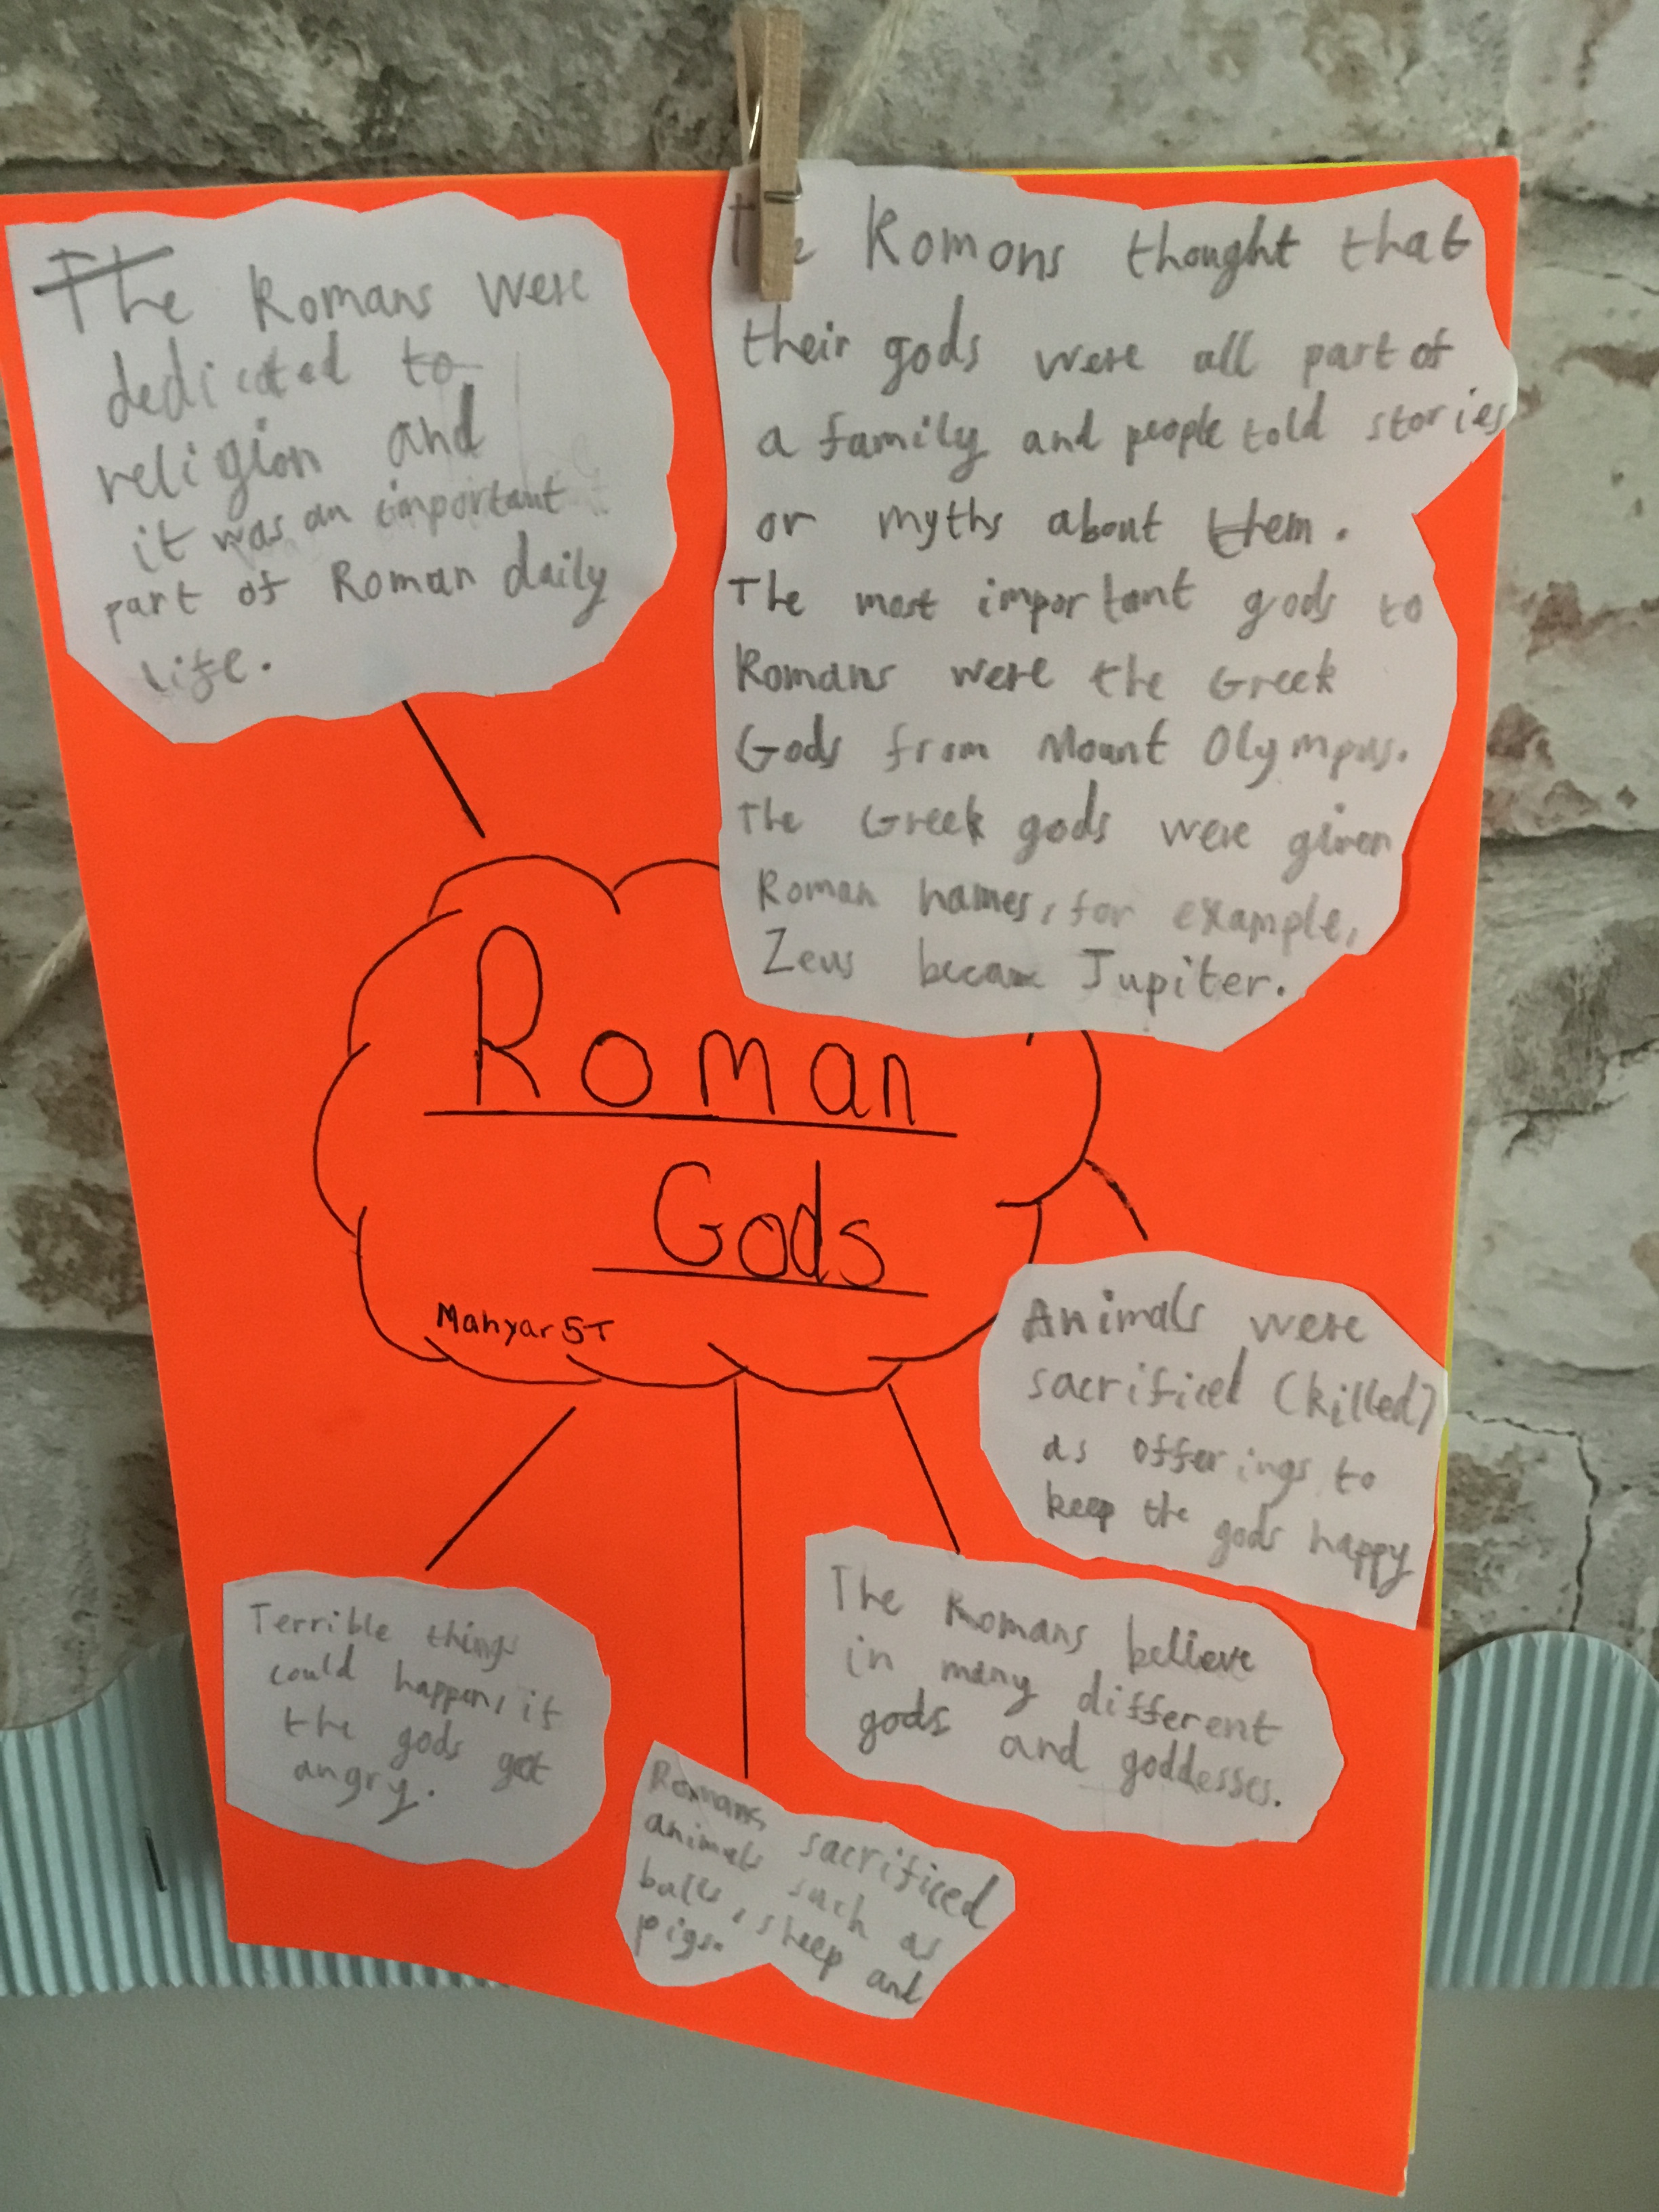 The Romans were
dedicated to
religion and
it was an important
part of Roman daily
life.
the Romons thought that
their gods were all part of
a family and people told stories
or myths about them.
The most important gods to
Romans were the Greek
Gods from Mount Olympus.
The Greek gods were given
Roman names, for example,
Zeus became Jupiter.
Roman
Gods
Mahyar 5T
Animals were
sacrificed (killed)
as offerings to
keep the gods happy
The Romans believe
in many different
gods and goddesses.
Romans sacrificed
animals such as
bulls, sheep and
pigs.
Terrible things
could happen, if
the gods got
angry.